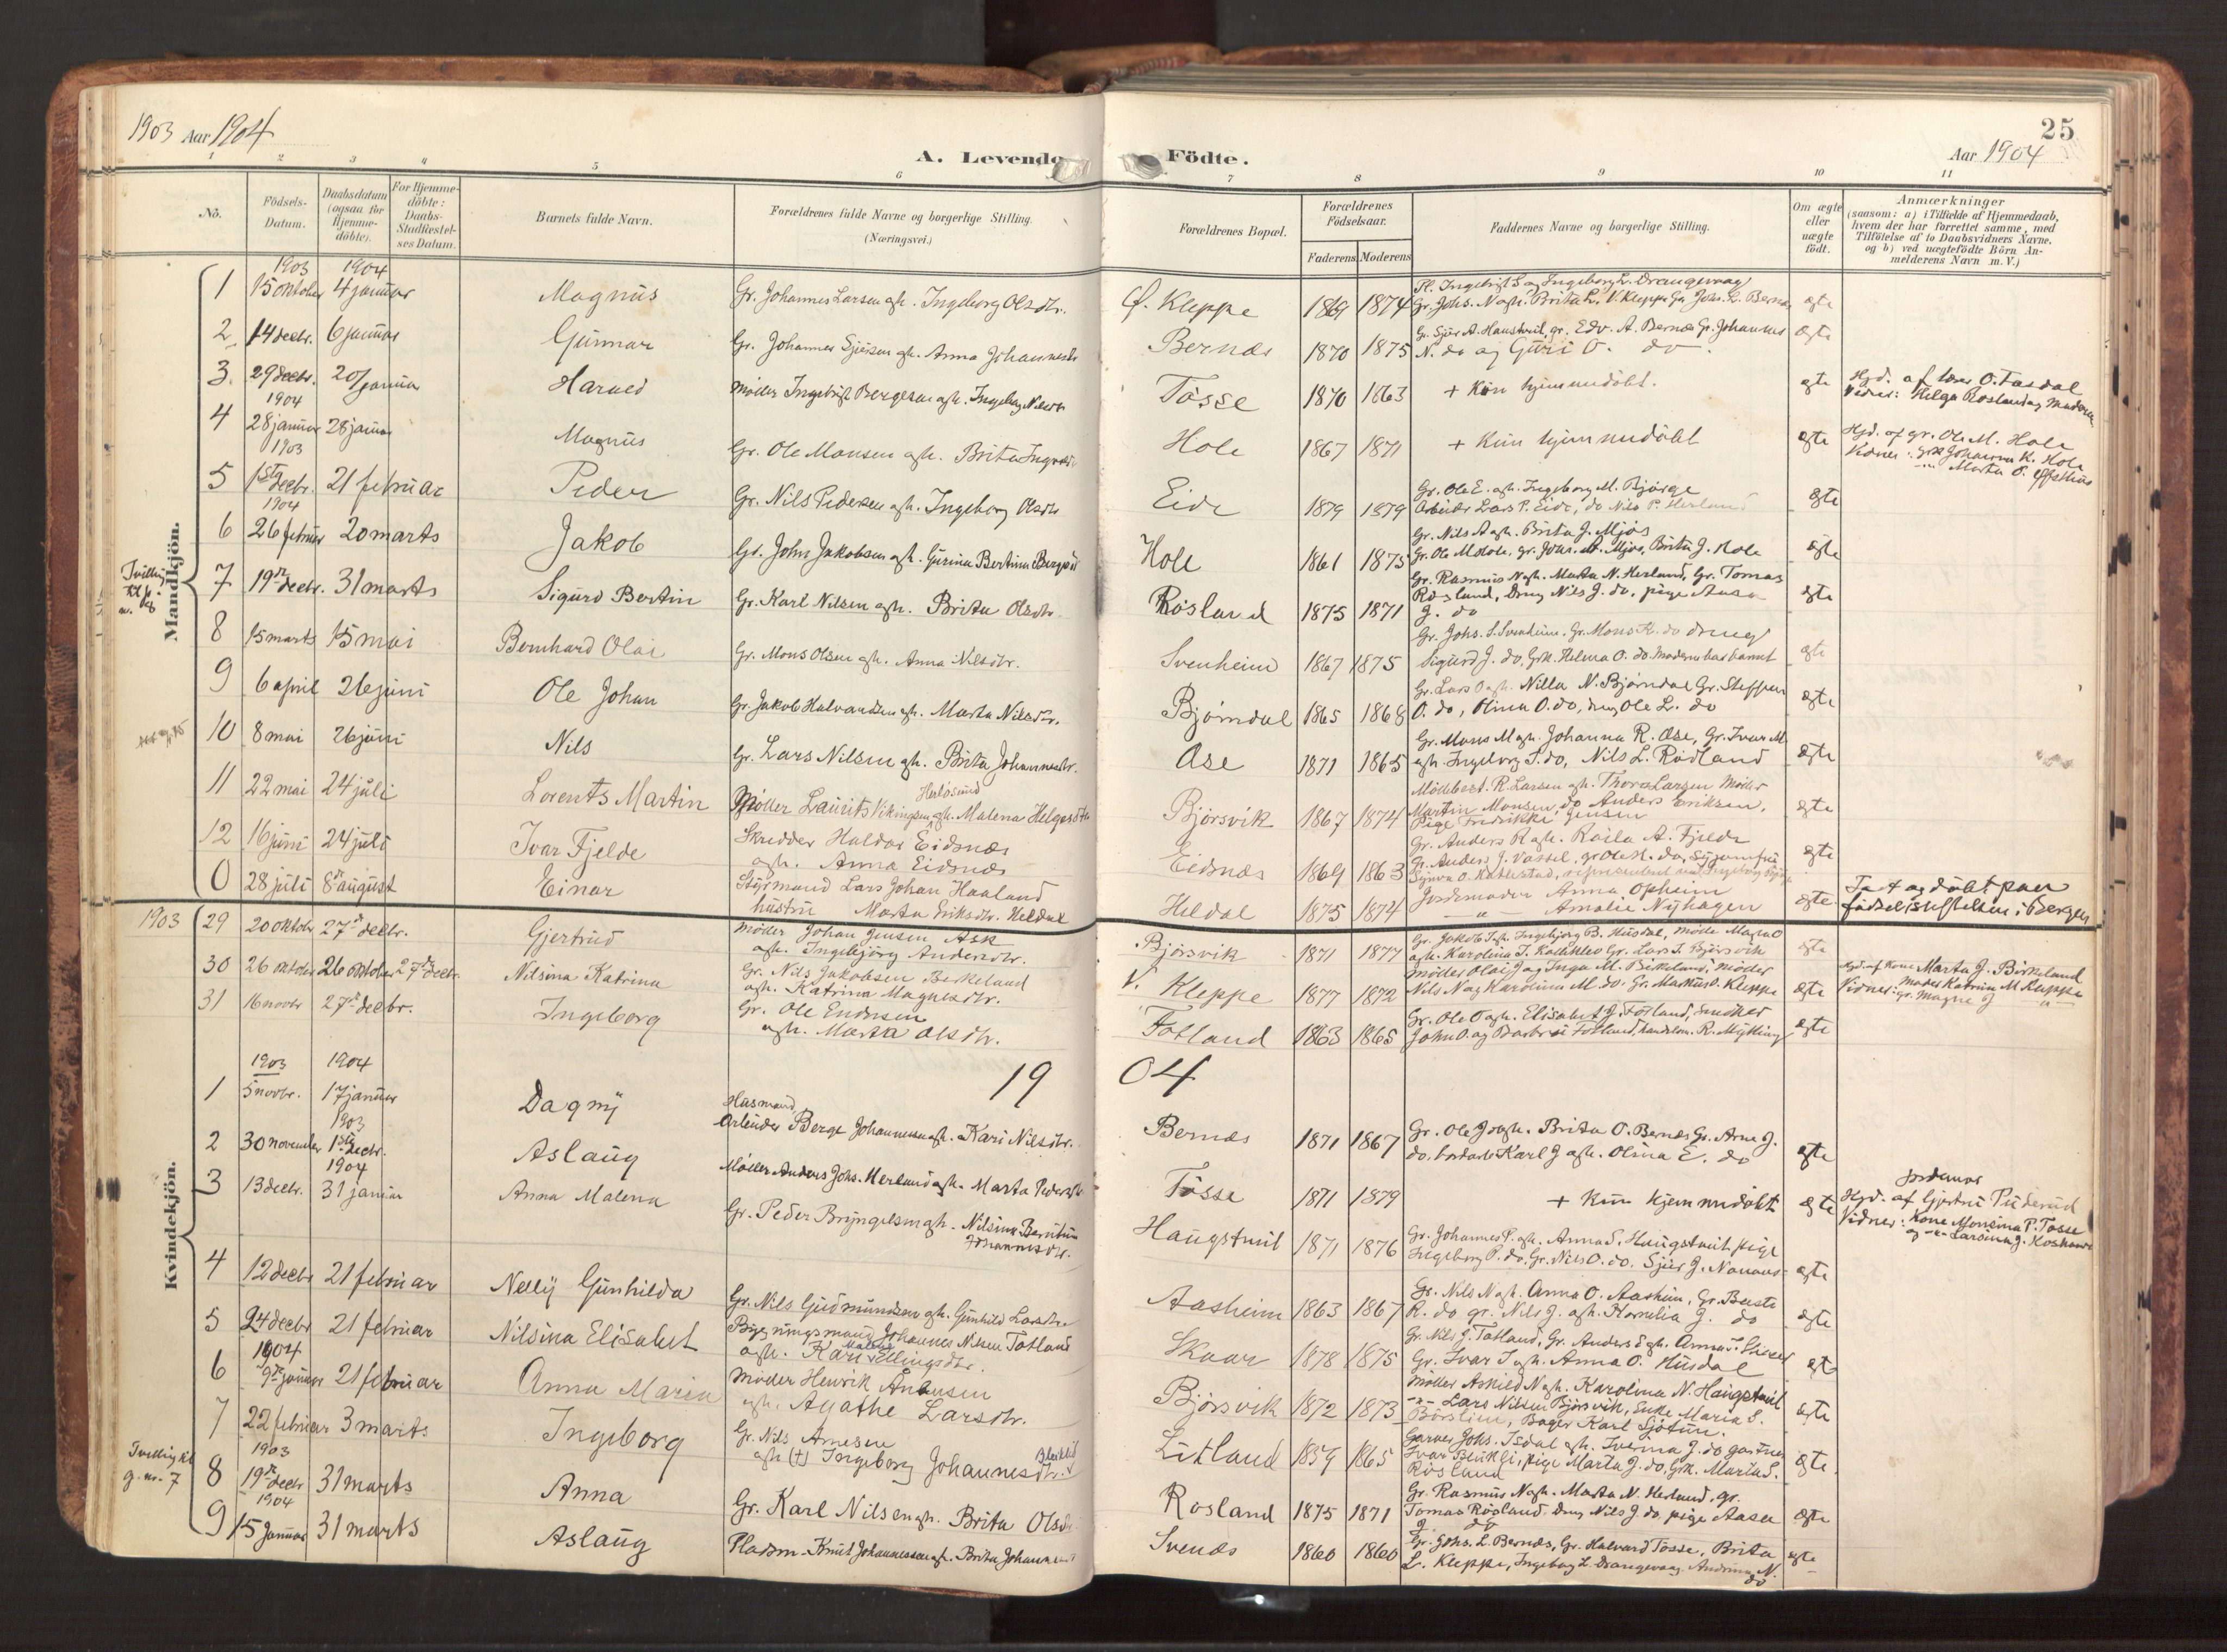 1903 Aar 1904
A. Levende Födte.
25
Aar 1904
1 2 3 4 5 6 7 8 9 10 11
Nô. Födsels-Datum. Daabsdatum (ogsaa for Hjemmedöbte). For Hjemmedöbte: Daabs-Stadfæstelses Datum. Barnets fulde Navn. Forældrenes fulde Navne og borgerlige Stilling. (Næringsvei.) Forældrenes Bopæl. Forældrenes Födselsaar. Faderens Moderens Faddernes Navne og borgerlige Stilling. Om ægte eller uægte födt. Anmærkninger (saasom: a) i Tilfælde af Hjemmedaab, hvem der har forrettet samme, med Tilföielse af to Daabsvidners Navne. og b) ved uægtefödte Börn Anmelderens Navn m. V.)
Mandkjön.
1903 1904
1 15 oktober 4 januar Magnus Gr. Johannes Larsen gh. Ingeborg Olsdtr. Kleppe 1869 1874 Gr. Johs. N gh. Brita L. V. Kleppe Gr. Johs. L. Bernæs ægte
2 14 decbr. 6 januar Gunnar Gr. Johannes Sjursen gh. Anna Johannesdr Bernæs 1870 1875 Gr. Sjur A. Haustveit, gr. Edv. A. Bernæs Gr. Johannes N. do og Guri O. do ægte
3 29 decbr. 20 januar Harald Møller Ingebrigt Bergesen gh. Ingeborg Nilsdtr Tösse 1870 1863 + Kun hjemmedöbt. ægte Hjd. af lærer O. Tasdal
1904
4 28 januar 28 januar Magnus Gr. Ole Monsen gh. Brita Hole 1867 1871 + Kun hjemmedöbt ægte Hjd. af gr. Ole M. Hole Vidner: Grk Johanna K. Hole Marta O.
1903
5 1ste decbr. 21 februar Peder Gr. Nils Pedersen gh. Ingeborg Olsdtr Eide 1879 1879 Gr. Ole E. gh. Ingeborg M. Bjørge Arbeider Lars P. Eide, do Nils P. Herland ægte
1904
6 26 februar 20 marts Jakob Gr. John Jakobsen gh. Gurina Bertina Hole 1861 1875 Gr. Nils A gh. Brita J. Mjøs Gr. Ole M Hole, gr. Johs. A. Mjøs, Brita J. Hole ægte
Tvilling
7 19de decbr. 31 marts Sigurd Bertin Gr. Karl Nilsen gh. Brita Olsdtr. Rösland 1875 1871 Gr. Rasmus N gh. Marta N. Herland, Gr. Tomas Rösland, Dreng Nils J. do, pige Aasa J. do ægte
8 15 marts 15 mai Bernhard Olai Gr. Mons Olsen gh. Anna Nilsdtr. Svenheim 1867 1875 Gr. Johs. S. Svenheim. Gr. Mons K. do dreng Sigurd J. do, Grk. Helena O. do. Moderen bar barnet ægte
9 6 april 26 juni Ole Johan Gr. Jakob Halvardsen gh. Marta Nilsdtr. Bjørndal 1865 1868 Gr. Lars O gh. Nilla N. Bjørndal Gr. Steffen O. do, Olina O. do, dreng Ole L. do ægte
10 8 mai 26 juni Nils Gr. Lars Nilsen gh. Brita Johannesdtr. Ose 1871 1865 Gr. Mons M gh. Johanna R. Ose, Gr. Ivar M gh. Ingeborg T. do, Nils L. Rödland ægte
11 22 mai 24 juli Lorents Martin Møller Laurits Vikingsen Herlösund gh. Malena Helgesdtr Bjørsvik 1867 1874 R. Larsen gh. Thora Larsen Møller Martin Monsen, do Anders Eriksen, Pige Fredrikke Jensen ægte
12 16 juni 24 juli Ivar Fjelde Skredder Haldor Eidsnæs gh. Anna Eidsnæs Eidsnæs 1869 1863 Gr. Anders R gh. Raila A. Fjelde Gr. Anders J. Vassel, ægte
0 28 juli 8de august Einar Styrmand Lars Johan Haaland hustru Marta Eriksdtr. Heldal Heldal 1875 1874 Jordemoder Anna Opheim Amalie Nyhagen ægte født og døbt paa fødselsstiftelsen i Bergen
Kvindekjön.
1903 29 20 oktobr 27de decbr. Gjertrud Møller Johan Jensen Ask gh. Ingebjørg Andersdtr. Bjørsvik 1871 1877 Gr. Jakob J gh. Ingebjørg B. Husdal, gh. Karolina Gr. Lars J. Bjørsvik ægte
30 26 oktober 26 oktober 27de decbr. Nilsina Katrina Gr. Nils Jakobsen Berkeland gh. Katrina Magnesdtr. V. Kleppe 1877 1872 Møller Olai J og Inga M. Birkeland, Møller Nils N og Karolina M. do. Gr. Markus O. Kleppe ægte Hjd. af Kone Marta J. Birkeland Vidner: gr. Magne J
31 16 novbr 27de decbr. Ingeborg Gr. Ole Endresen gh. Marta Olsdtr. Totland 1863 1865 Gr. Ole O gh. Elisabet J. Totland, Snedker John O. og Totland, handelsm. R. Mykling ægte
1903 1904
1904
1 5 novbr. 17 januar Dagny Husmand Arbeider Berge Johannesen gh. Kari Nilsdtr. Bernæs 1871 1867 Gr. Ole J gh. Brita O. Bernæs Gr. Arne J. do. Karl J gh. Olina E. do ægte
1903
2 30 november 1ste decbr. Aslaug Møller Anders Johs. Herland gh. Marta Pedersdtr Tösse 1871 1879 + Kun hjemmedöbt ægte Jordemor Hjd. af Gjertrud Vidner: Kone Monsina P. Tosse og Larsina J.
1904
3 13 decbr. 31 januar Anna Malena Gr. Peder Bryngelsen gh. Nilsina Johannesdtr. Haugstveit 1871 1876 Gr. Johannes P. gh. Anna S. Haugstveit, pige Ingeborg P. do, Gr. Nils O. do. Sjur J. ægte
4 12 decbr 21 februar Nelly Gunhilda Gr. Nils Gudmundsen gh. Gunhild Larsdtr. Aasheim 1863 1867 Gr. Nils N gh. Anna O. Aasheim, Gr. R. do gr. Nils J. gh. Kornelia J. do ægte
5 24 decbr 21 februar Nilsina Elisabet Bygningsmand Johannes Nilsen Totland gh. Kari Ellingsdtr. Skaar 1878 1875 Gr. Nils J. Totland, Gr. Anders E gh. Anna Gr. Ivar J gh. Anna O. Husdal ægte
1904
6 9de januar 21 februar Anna Maria Møller Henrik Andersen gh. Agathe Larsdtr. Bjørsvik 1872 1873 Møller Askild N gh. Karolina N. Haugstveit Lars Nilsen Bjørsvik, Enke Maria S. Bager Karl Sjøtun. ægte
7 22 februar 3 marts Ingeborg Gr. Nils Arnesen gh (+) Ingeborg Johannesdtr. Litland 1859 1865 Garver Johs. Isdal gh. Iverina J. do pige Marta J. do, Grk. Marta S. Rösland ægte
Tvilling
1903
8 19de decbr 31 marts Anna Gr. Karl Nilsen gh. Brita Olsdtr Rosland 1875 1871 Gr. Rasmus N gh. Marta N. Herland, gr. Tomas Rösland, Dreng Nils J. do, pige Aasa J. do ægte
1904
9 15 Januar 31 marts Aslaug Pladsm. Knut Johannessen gh. Brita Johannesdtr Svenæs 1860 1860 Gr. Johs. L. Bernæs, Gr. Halvard Tosse, Brita L. Kleppe, Ingeborg L. Drangevaag, Andrina N. do ægte